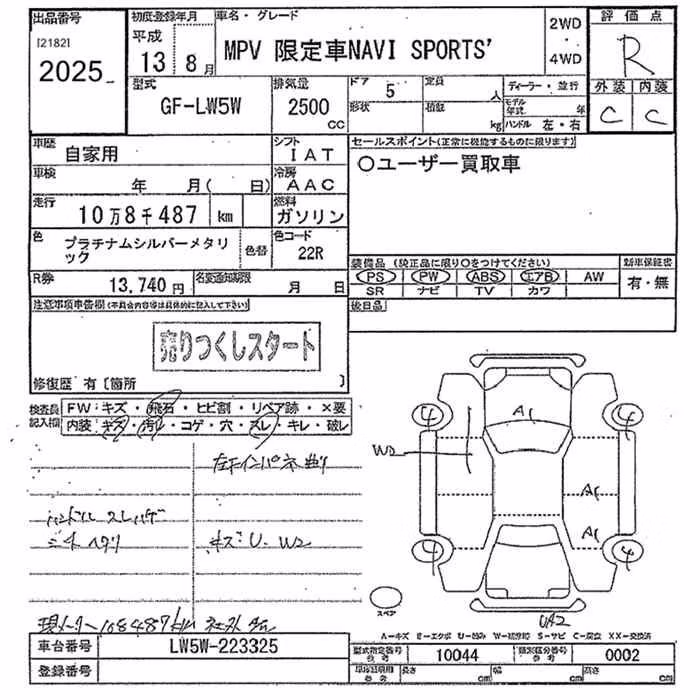 出品番号
[2182]
2025
初度登録年月
平成
13 8月
車名・グレード
MPV 限定車NAVI SPORTS'
2WD
・
4WD
評価点
R
外装 内装
C C
型式
GF-LW5W
排気量
2500
CC
ドア
5
定員
人
形状
積載
kg
ディーラー・並行
モデル年式 年
ハンドル 左・右
車歴
自家用
シフト
IAT
車検
年 月( 日)
冷房
AAC
走行
10万8千487 km
燃料
ガソリン
色
プラチナムシルバーメタリック
色替
色コード
22R
R券
13,740円
名変通知期限
月 日
セールスポイント(正常に機能するものに限ります)
○ユーザー買取車
装備品 (純正品に限り○をつけてください)
PS PW ABS エアB AW
SR ナビ TV カワ
新車保証書
有・無
後日品
注意事項申告欄(不具合内容等は具体的に記入して下さい)
売りつくしスタート
修復歴 有〔箇所 〕
検査員記入欄
FW:キズ・飛石・ヒビ割・リペア跡・×要
内装:キズ・汚レ・コゲ・穴・スレ・キレ・破レ
左下インパネ
ハンドルスレハゲ
キズ・U. W2
現メーター108487km
A1
W2
A1
A1
4
4
4
4
UA2
スペア
A－キズ E－エクボ U－凹み W－補修跡 S－サビ C－腐食 XX－交換済
車台番号
LW5W-223325
登録番号
型式指定番号
参考
10044
類別区分番号
参考
0002
長さ cm
幅 cm
高さ cm